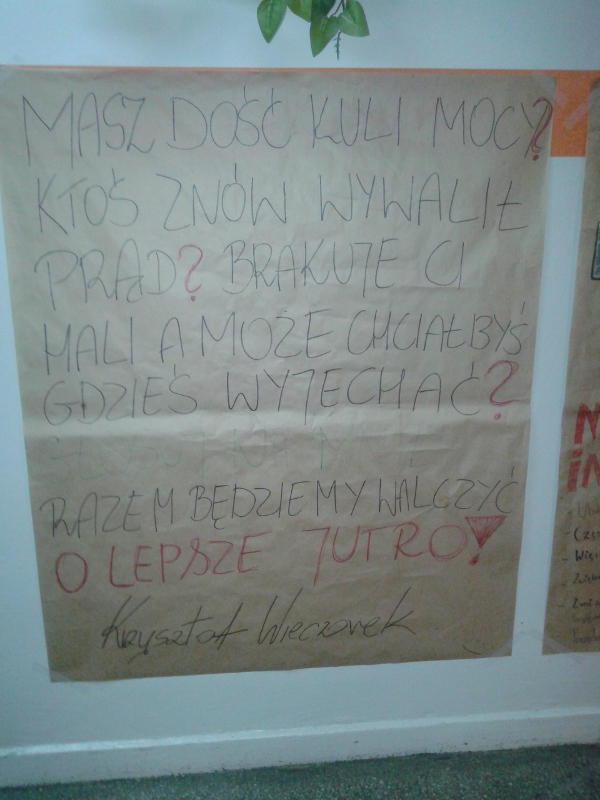 MASZ DOŚĆ KULI MOCY?
KTOŚ ZNÓW WYWALIŁ
PRĄD? BRAKUJE CI
HALI A MOŻE CHCIAŁBYŚ
GDZIEŚ WYJECHAĆ?
RAZEM BĘDZIEMY WALCZYĆ
O LEPSZE JUTRO!
Krzysztof Wieczorek